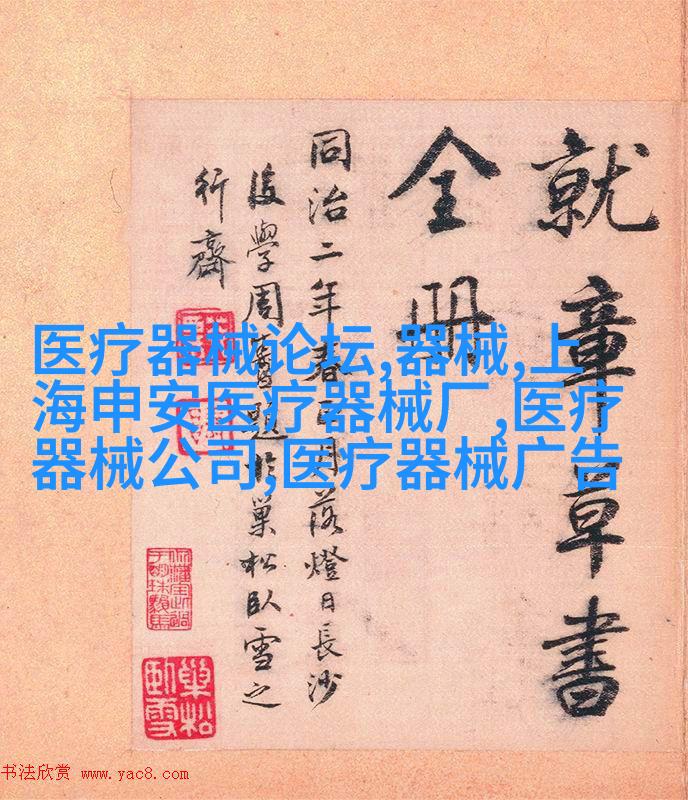 就章草書
全冊
同治二年春正月落燈日長沙
後學周壽題於巢松臥雪之
行齋
医疗器械论坛,器械,上
海申安医疗器械厂,医疗
器械公司,医疗器械广告
巢松
臥雪
书法欣赏 www.yac8.com